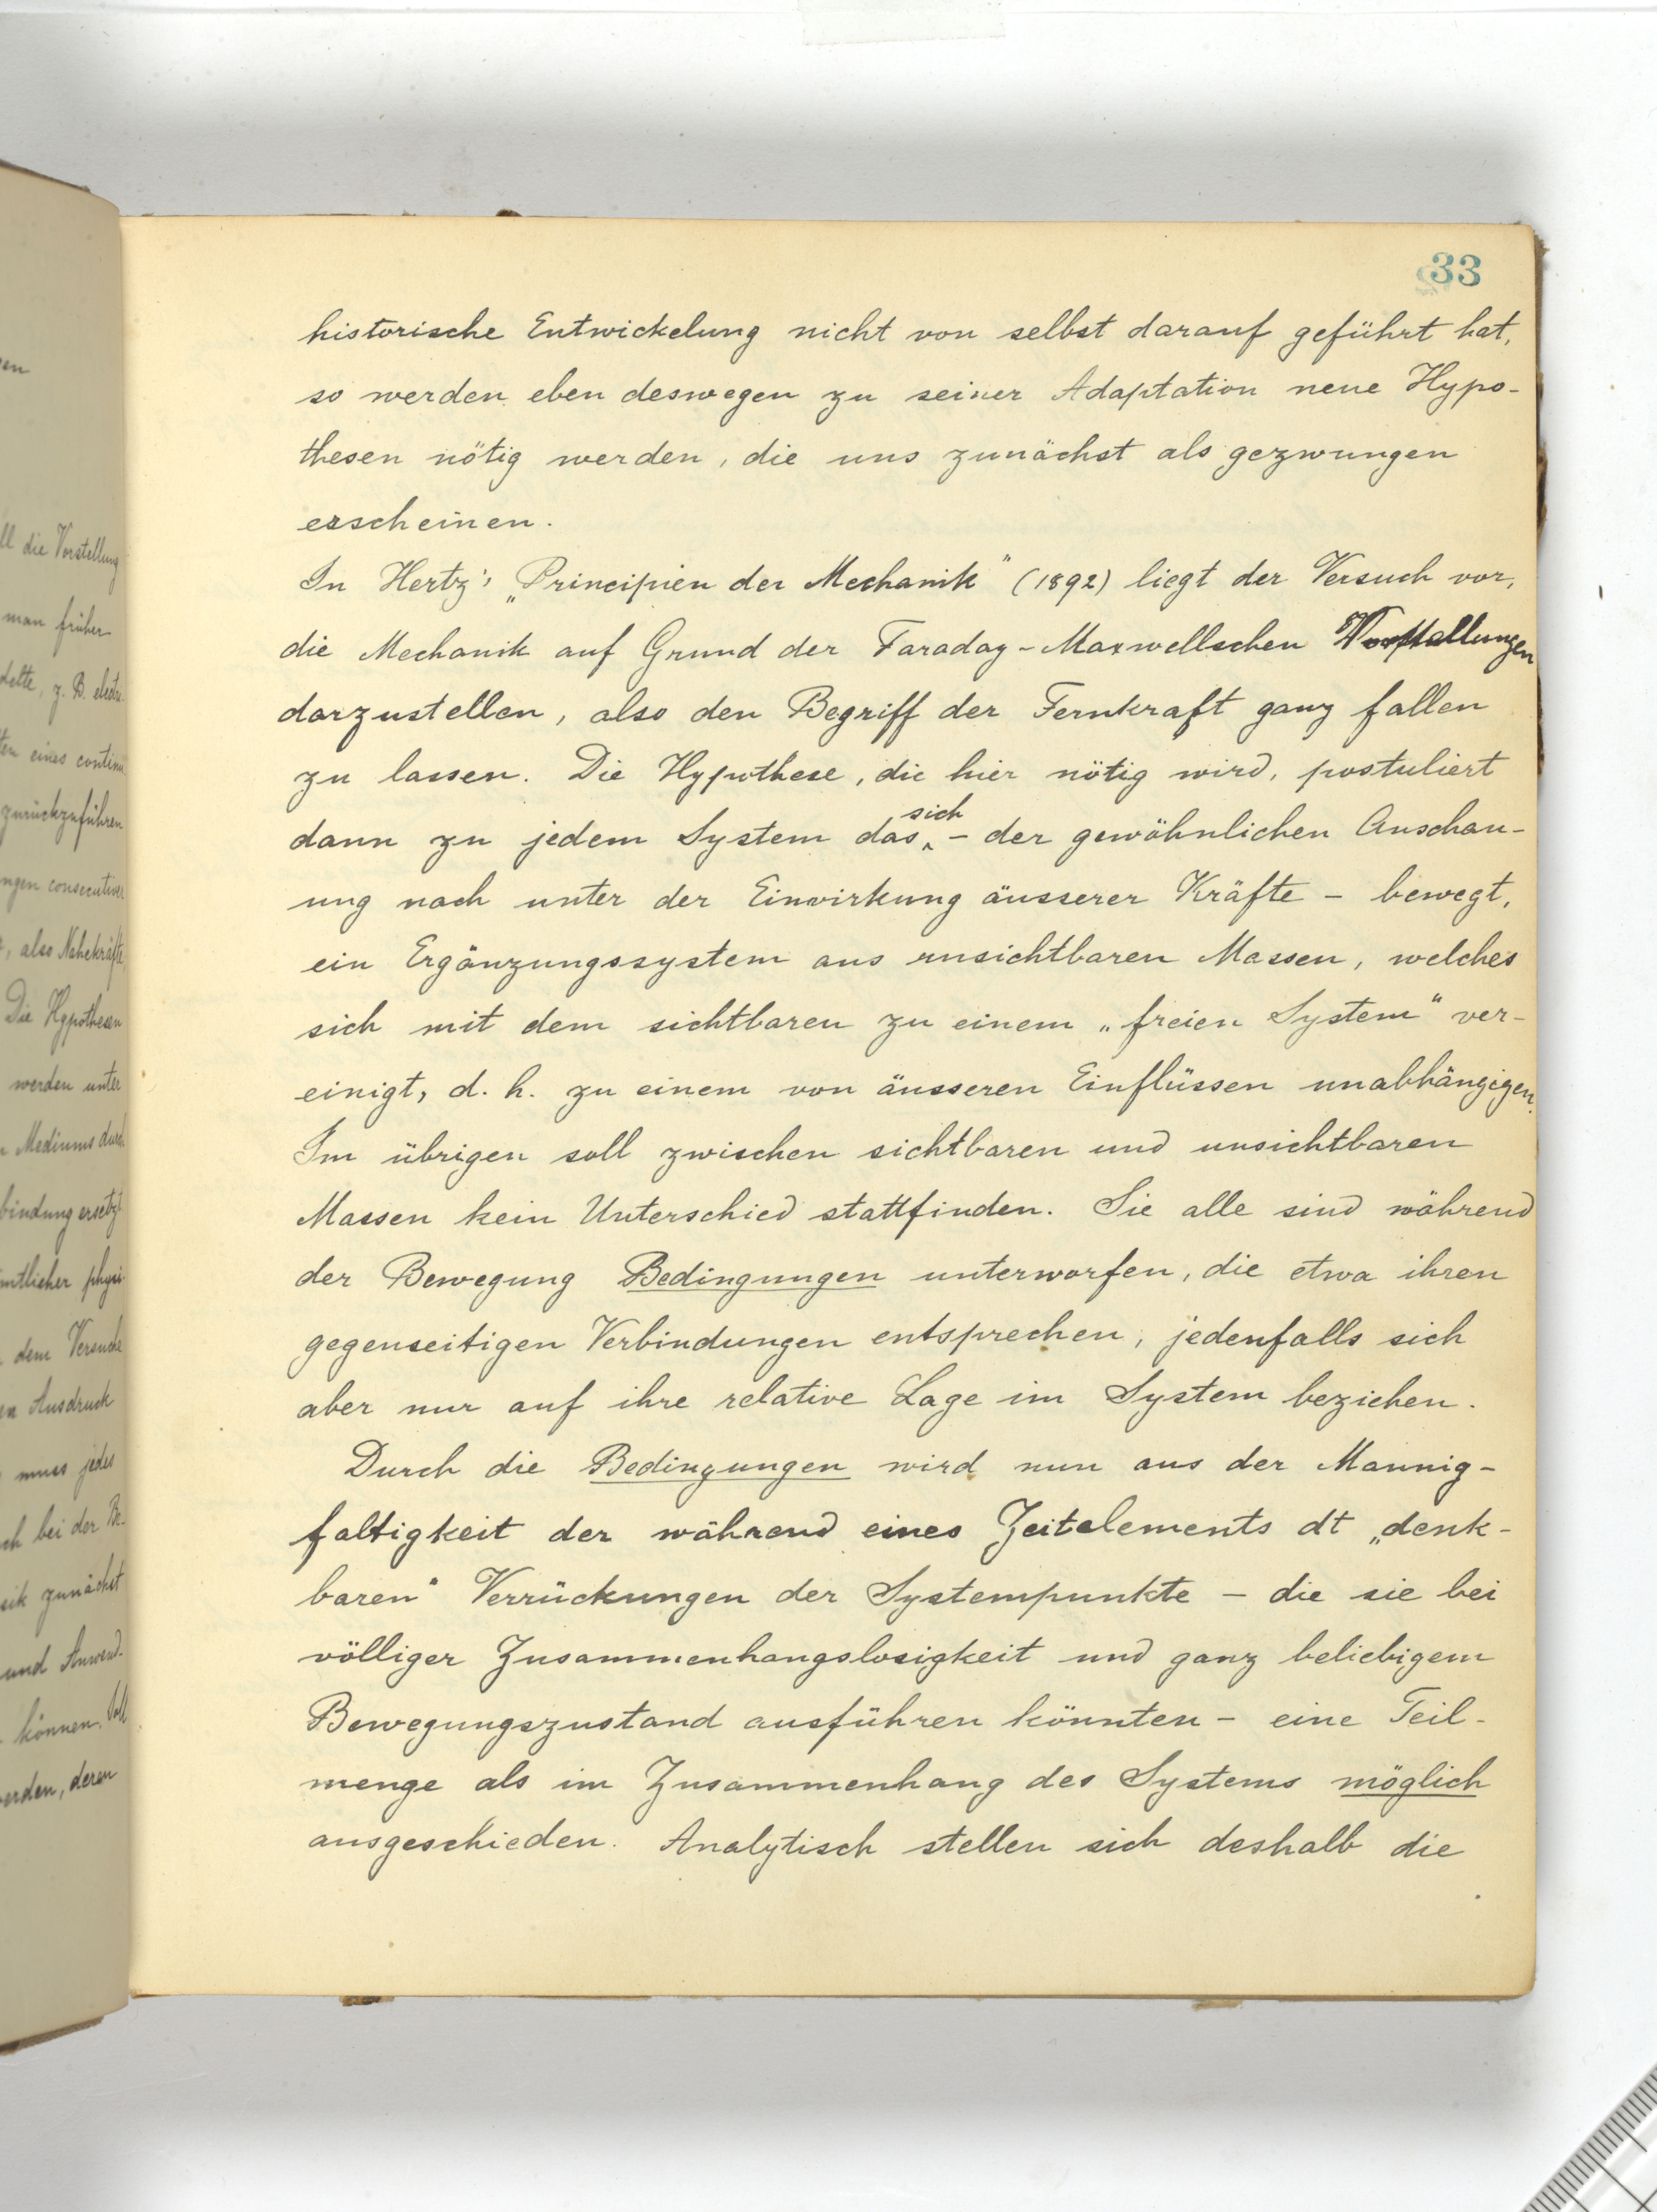 33
historische Entwickelung nicht von selbst darauf geführt hat,
so werden eben deswegen zu seiner Adaptation neue Hypo-
thesen nötig werden, die uns zunächst als gezwungen
erscheinen.
In Hertz's „Principien der Mechanik" (1892) liegt der Versuch vor,
die Mechanik auf Grund der Faraday-Maxwellschen Vorstellungen
darzustellen, also den Begriff der Fernkraft ganz fallen
zu lassen. Die Hypothese, die hier nötig wird, postuliert
dann zu jedem System das sich – der gewöhnlichen Anschau-
ung nach unter der Einwirkung äusserer Kräfte – bewegt,
ein Ergänzungssystem aus unsichtbaren Massen, welches
sich mit dem sichtbaren zu einem „freien System" ver-
einigt, d. h. zu einem von äusseren Einflüssen unabhängigen.
Im übrigen soll zwischen sichtbaren und unsichtbaren
Massen kein Unterschied stattfinden. Sie alle sind während
der Bewegung Bedingungen unterworfen, die etwa ihren
gegenseitigen Verbindungen entsprechen, jedenfalls sich
aber nur auf ihre relative Lage im System beziehen.
Durch die Bedingungen wird nun aus der Mannig-
faltigkeit der während eines Zeitelements dt „denk-
baren" Verrückungen der Systempunkte – die sie bei
völliger Zusammenhangslosigkeit und ganz beliebigem
Bewegungszustand ausführen könnten – eine Teil-
menge als im Zusammenhang des Systems möglich
ausgeschieden. Analytisch stellen sich deshalb die